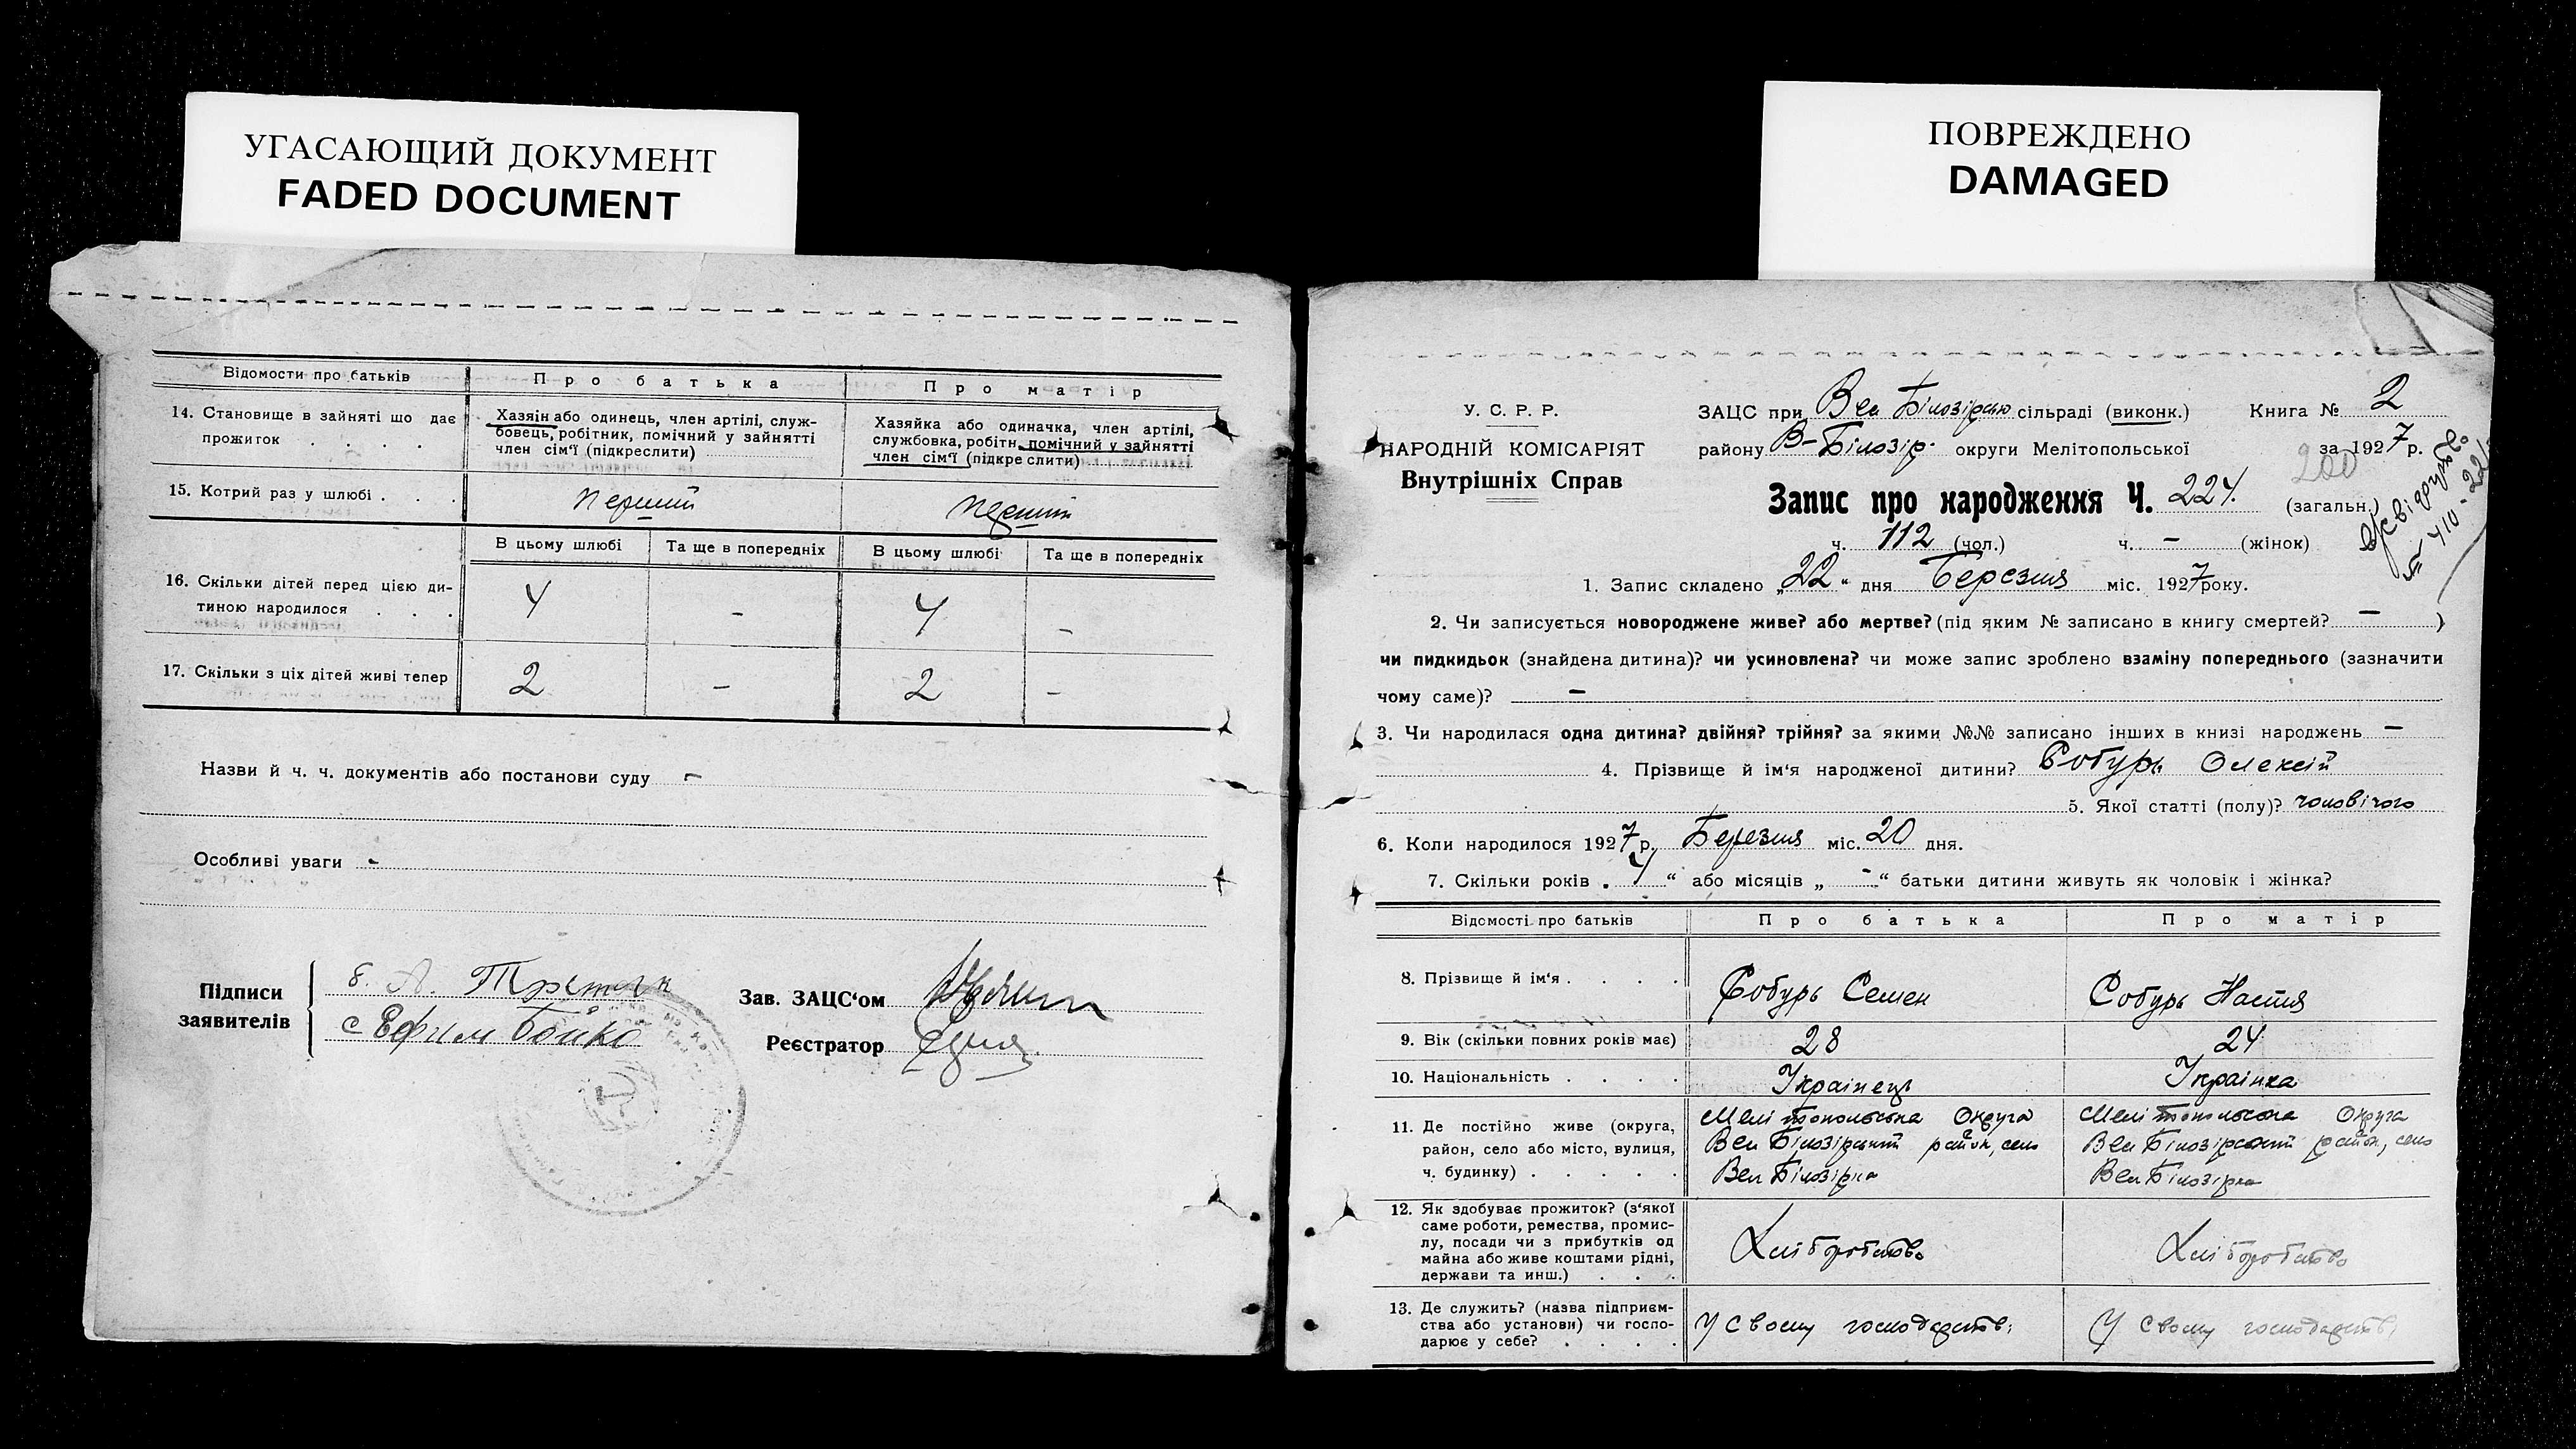 УГАСАЮЩИЙ ДОКУМЕНТ
FADED DOCUMENT
Відомости про батьків
Про батька
Про матір
14. Становище в зайняті що дає
прожиток . . . .
Хазяїн або одинець, член артілі, служ-
бовець, робітник, помічний у зайнятті
член сім'ї (підкреслити)
Хазяйка або одиначка, член артілі,
службовка, робітн. помічний у зайнятті
член сім'ї (підкреслити)
15. Котрий раз у шлюбі . . .
перший
перший
В цьому шлюбі
Та ще в попередніх
В цьому шлюбі
Та ще в попередніх
16. Скільки дітей перед цією ди-
тиною народилося . . .
4
-
4
-
17. Скільки з ціх дітей живі тепер
2
-
2
-
Назви й ч. ч. документів або постанови суду -
Особливі уваги -
Підписи
заявителів
Ефим Бойко
Зав. ЗАЦС'ом
Реєстратор
ПОВРЕЖДЕНО
DAMAGED
У. С. Р. Р.
НАРОДНІЙ КОМІСАРІЯТ
Внутрішніх Справ
ЗАЦС при Вел Білозірською сільраді (виконк.)
Книга № 2
району В-Білозір. округи Мелітопольської
за 1927 р.
200
Запис про народження Ч. 224. (загальн.)
ч. 112 (чол.) ч. - (жінок)
1. Запис складено „22“ дня Березня міс. 1927 року.
2. Чи записується новороджене живе? або мертве? (під яким № записано в книгу смертей? - )
чи пидкидьок (знайдена дитина)? чи усиновлена? чи може запис зроблено взаміну попереднього (зазначити
чому саме)? -
3. Чи народилася одна дитина? двійня? трійня? за якими №№ записано інших в книзі народжень -
4. Прізвище й ім'я народженої дитини? Собурь Олексій
5. Якої статті (полу)? чоловічого
6. Коли народилося 1927 р. Березня міс. 20 дня.
7. Скільки років „4“ або місяців „-“ батьки дитини живуть як чоловік і жінка?
Відомості про батьків
Про батька
Про матір
8. Прізвище й ім'я . . . .
Собурь Семен
Собурь Настя
9. Вік (скільки повних років має)
28
24
10. Національність . . . .
Українець
Українка
11. Де постійно живе (округа,
район, село або місто, вулиця,
ч. будинку) . . . . .
Мелітопольська Округа
Вел Білозірський район, село
Вел Білозірка
Мелітопольська Округа
Вел Білозірський район, село
Вел Білозірка
12. Як здобуває прожиток? (з'якої
саме роботи, ремества, промис-
лу, посади чи з прибутків од
майна або живе коштами рідні,
держави та инш.) . . .
Хліборобство
Хліборобство
13. Де служить? (назва підприєм-
ства або установи) чи госпо-
дарює у себе? . . . .
У своему господарстві
У своему господарстві